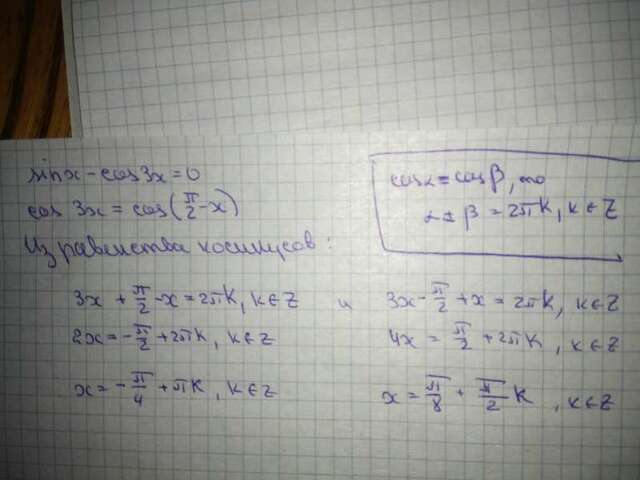 sinx - cos3x = 0
cos 3x = cos(π/2 - x)
Из равенства косинусов:
cosα = cosβ, то
α ± β = 2πk, k ∈ Z
3x + π/2 - x = 2πk, k ∈ Z и 3x - π/2 + x = 2πk, k ∈ Z
2x = -π/2 + 2πk, k ∈ Z 4x = π/2 + 2πk, k ∈ Z
x = -π/4 + πk, k ∈ Z x = π/8 + π/2 k, k ∈ Z